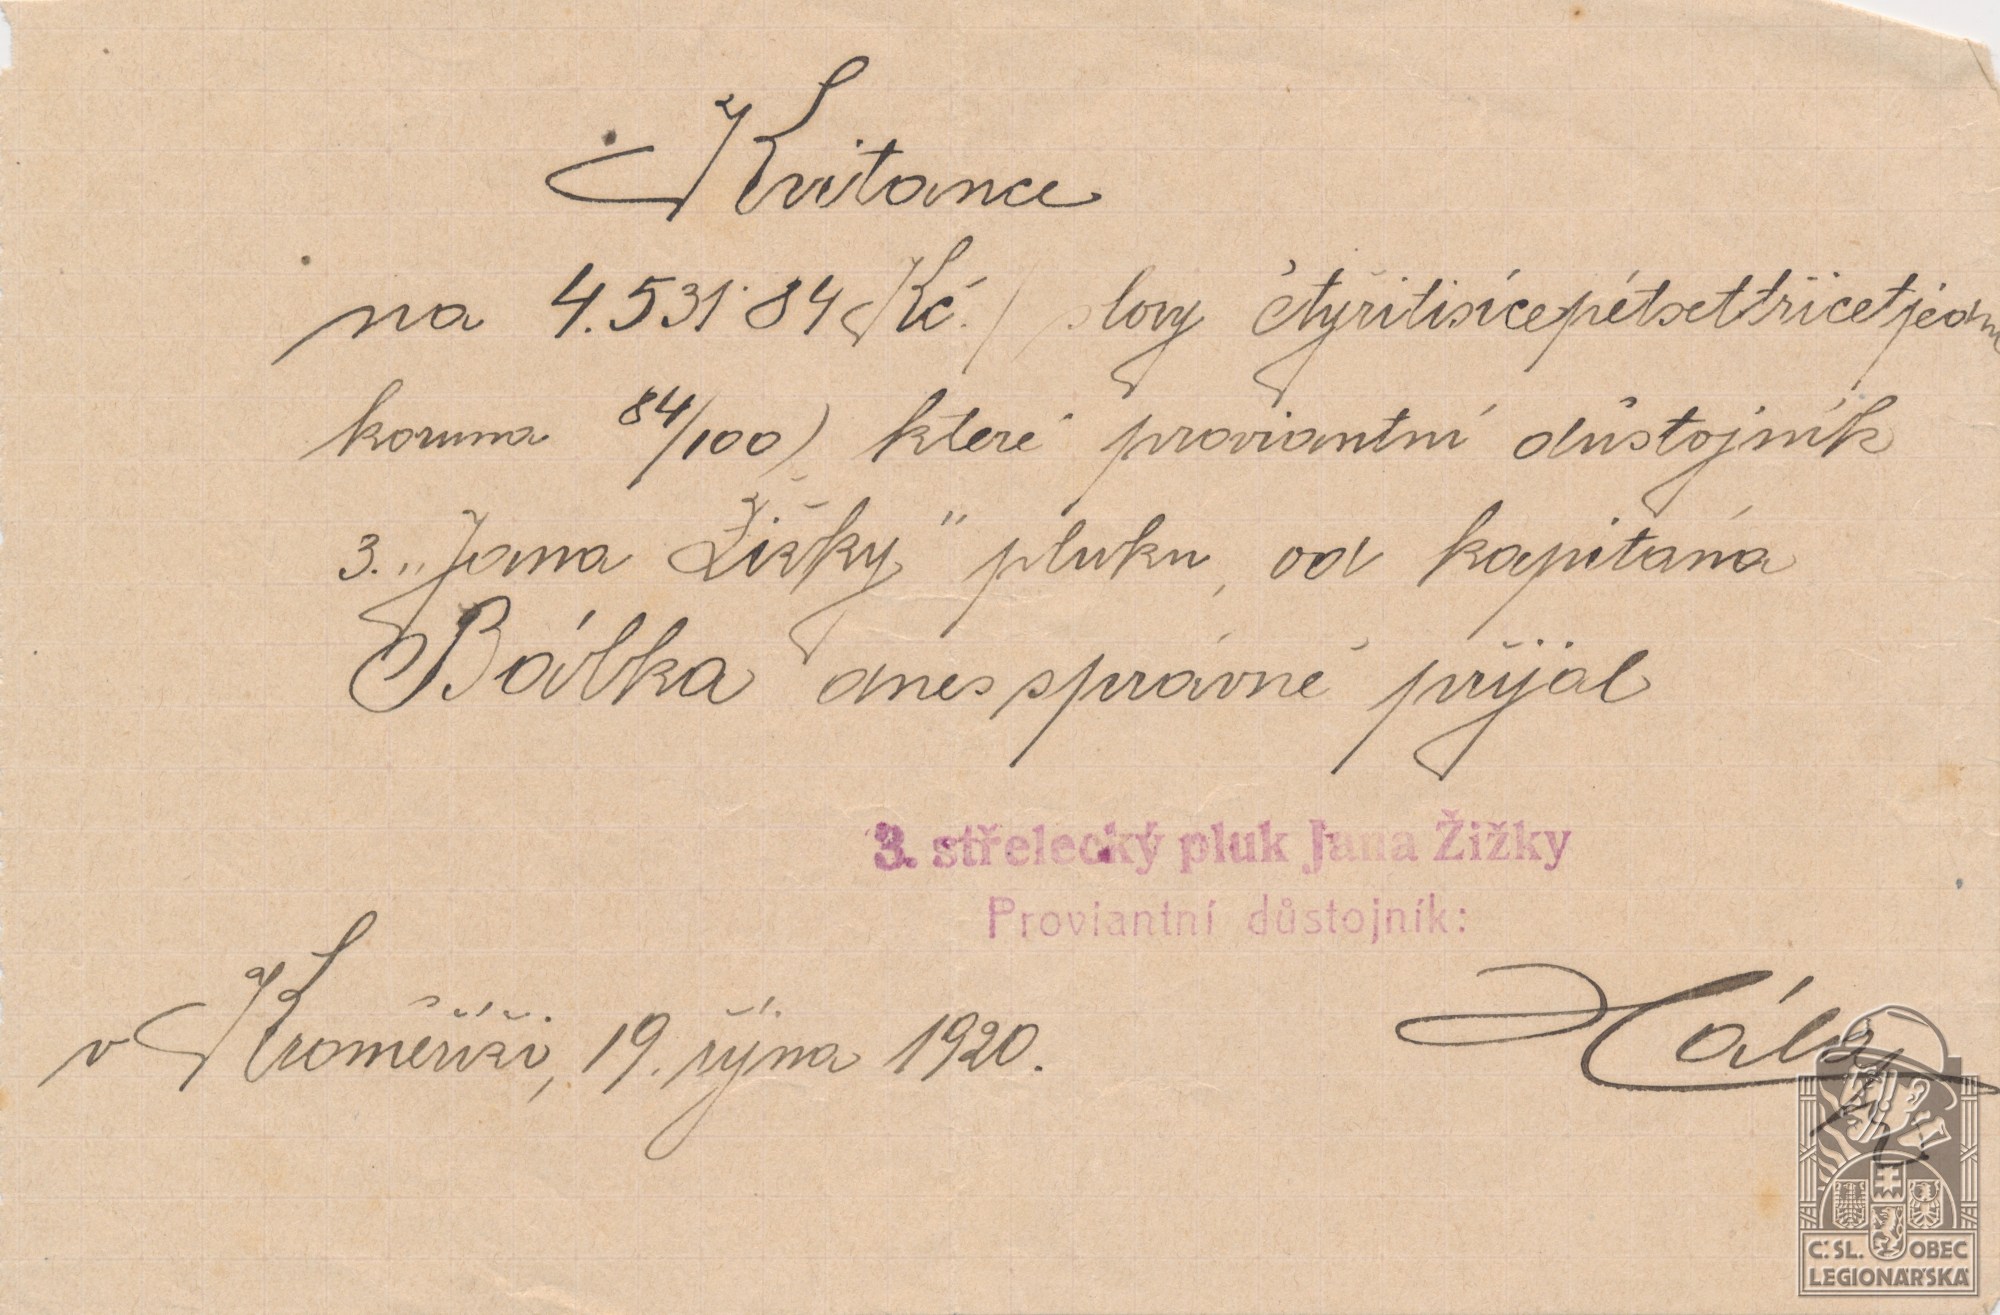 Kvitance
na 4.531·84 Kč. / slovy čtyřitisícepětsettřicetjedna
koruna 84/100) které proviantní důstojník
3. „Jana Žižky" pluku, od kapitána
Bálka dnes správně přijal
3. střelecký pluk Jana Žižky
Proviantní důstojník:
v Kroměříži, 19. října 1920.
Č.SL. OBEC
LEGIONÁŘSKÁ